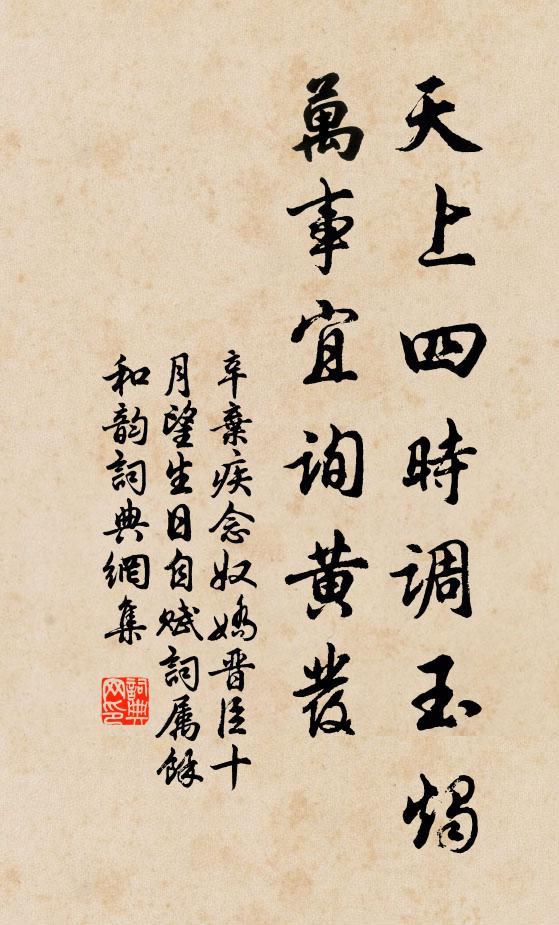 天上四時調玉燭
萬事宜詢黃發
辛棄疾念奴嬌晋臣十
月望生日自賦詞屬餘
和韵詞典網集
詞典
网印